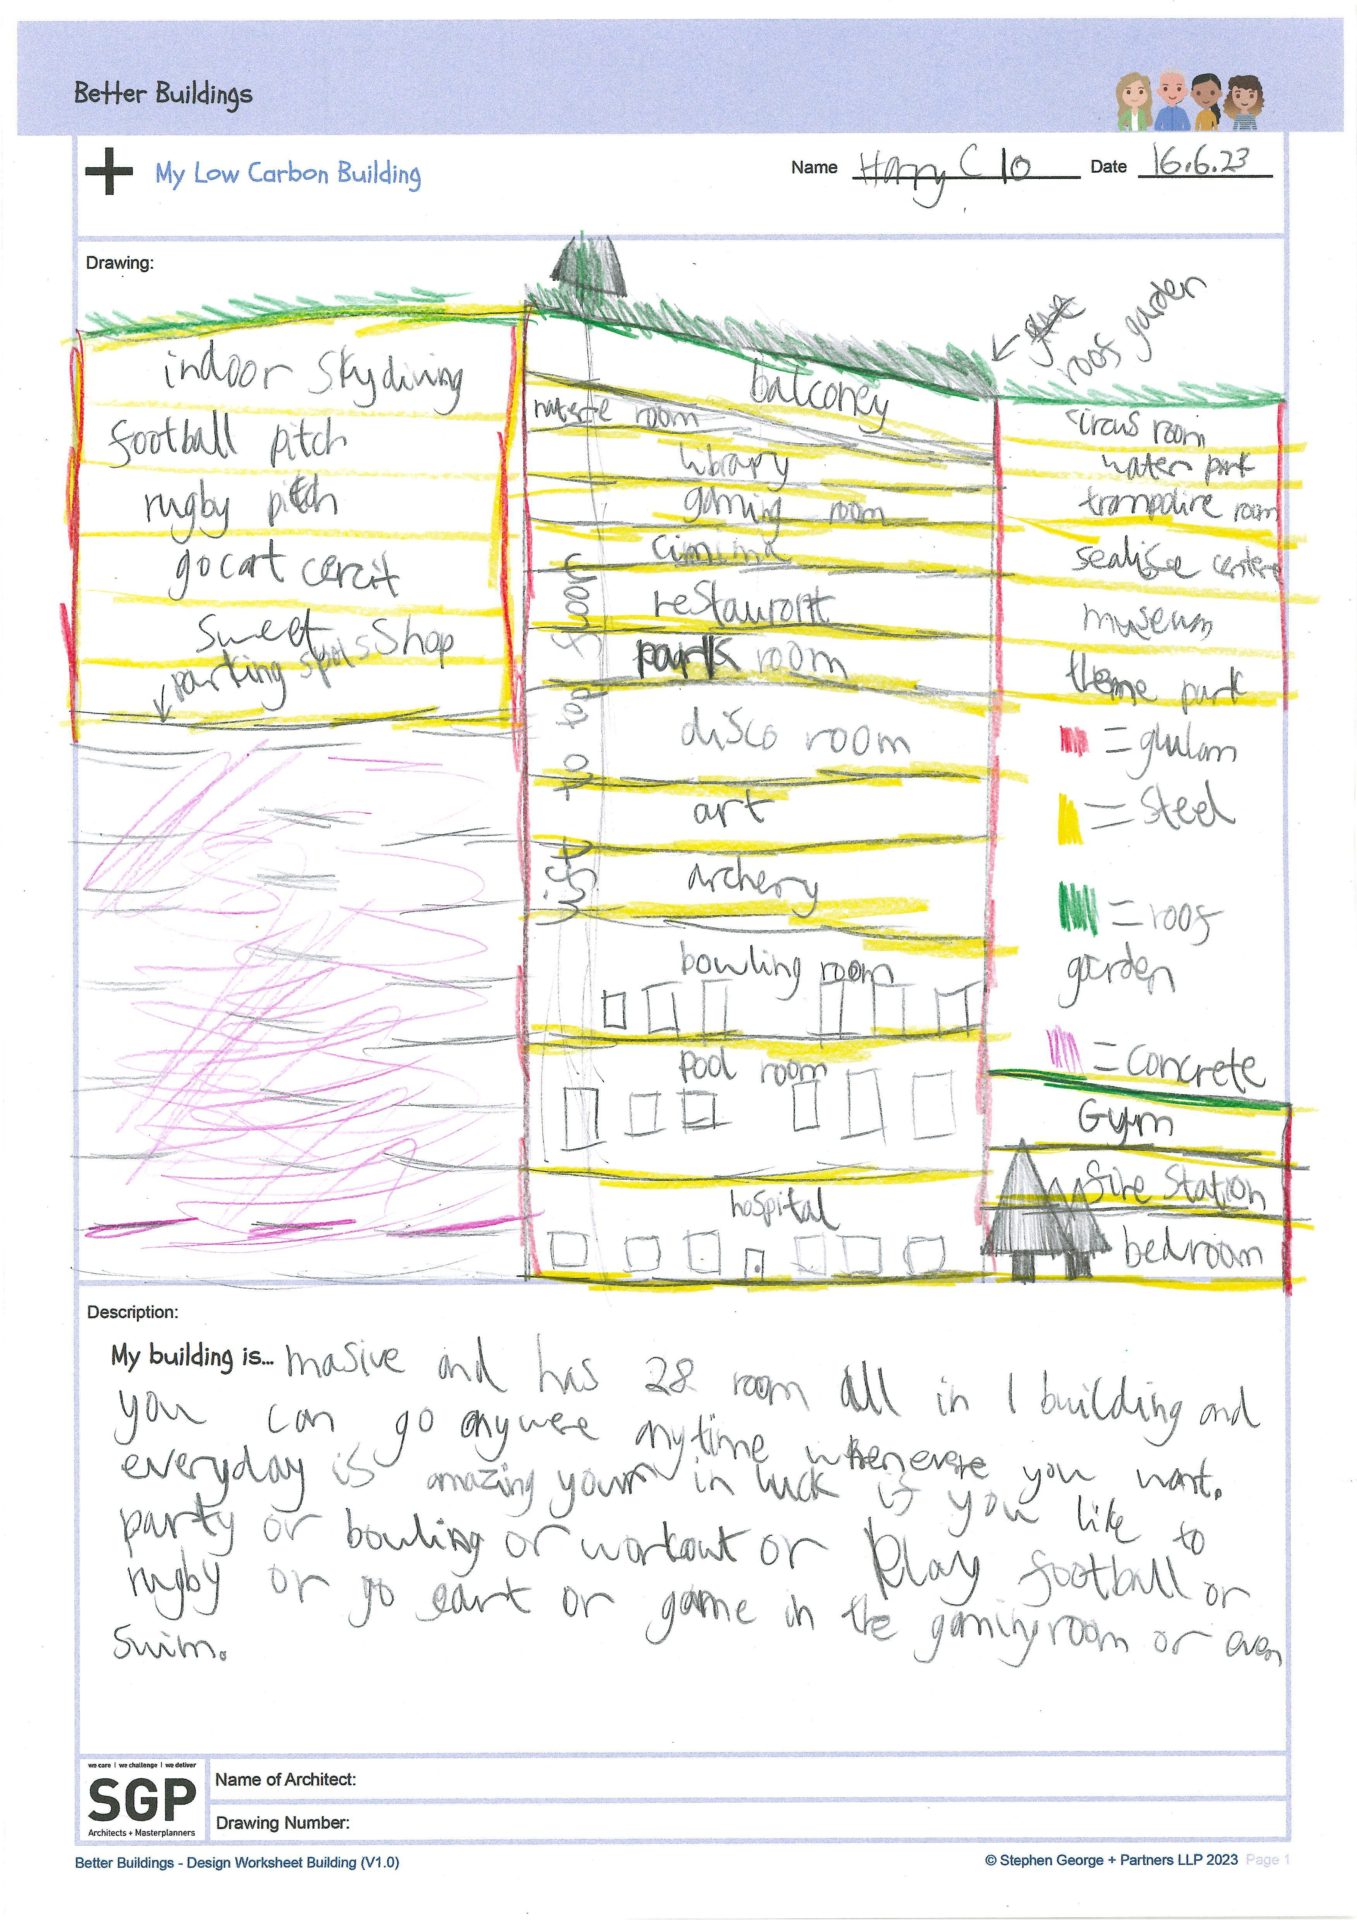 Better Buildings
My Low Carbon Building
Name Harry C 10 Date 16.6.23
Drawing:
roof garden
indoor skydiving
football pitch
rugby pitch
go cart cercit
sweet shop
parking spots
balconey
room
library
gaming room
cinima
restauront
park room
disco room
art
archery
bowling room
pool room
hospital
lift to top floor
circus room
water park
trampoline room
sealife centere
museum
theme park
= glulam
= Steel
= roof
garden
= concrete
Gym
fire Station
bedroom
Description:
My building is... masive and has 28 room all in 1 building and
you can go anywere anytime whenevere you want.
everyday is amazing your in luck if you like to
party or bowling or workout or play football or
rugby or go cart or game in the gaming room or even
swim.
we care | we challenge | we deliver
SGP
Architects + Masterplanners
Name of Architect:
Drawing Number:
Better Buildings - Design Worksheet Building (V1.0)
© Stephen George + Partners LLP 2023 Page 1